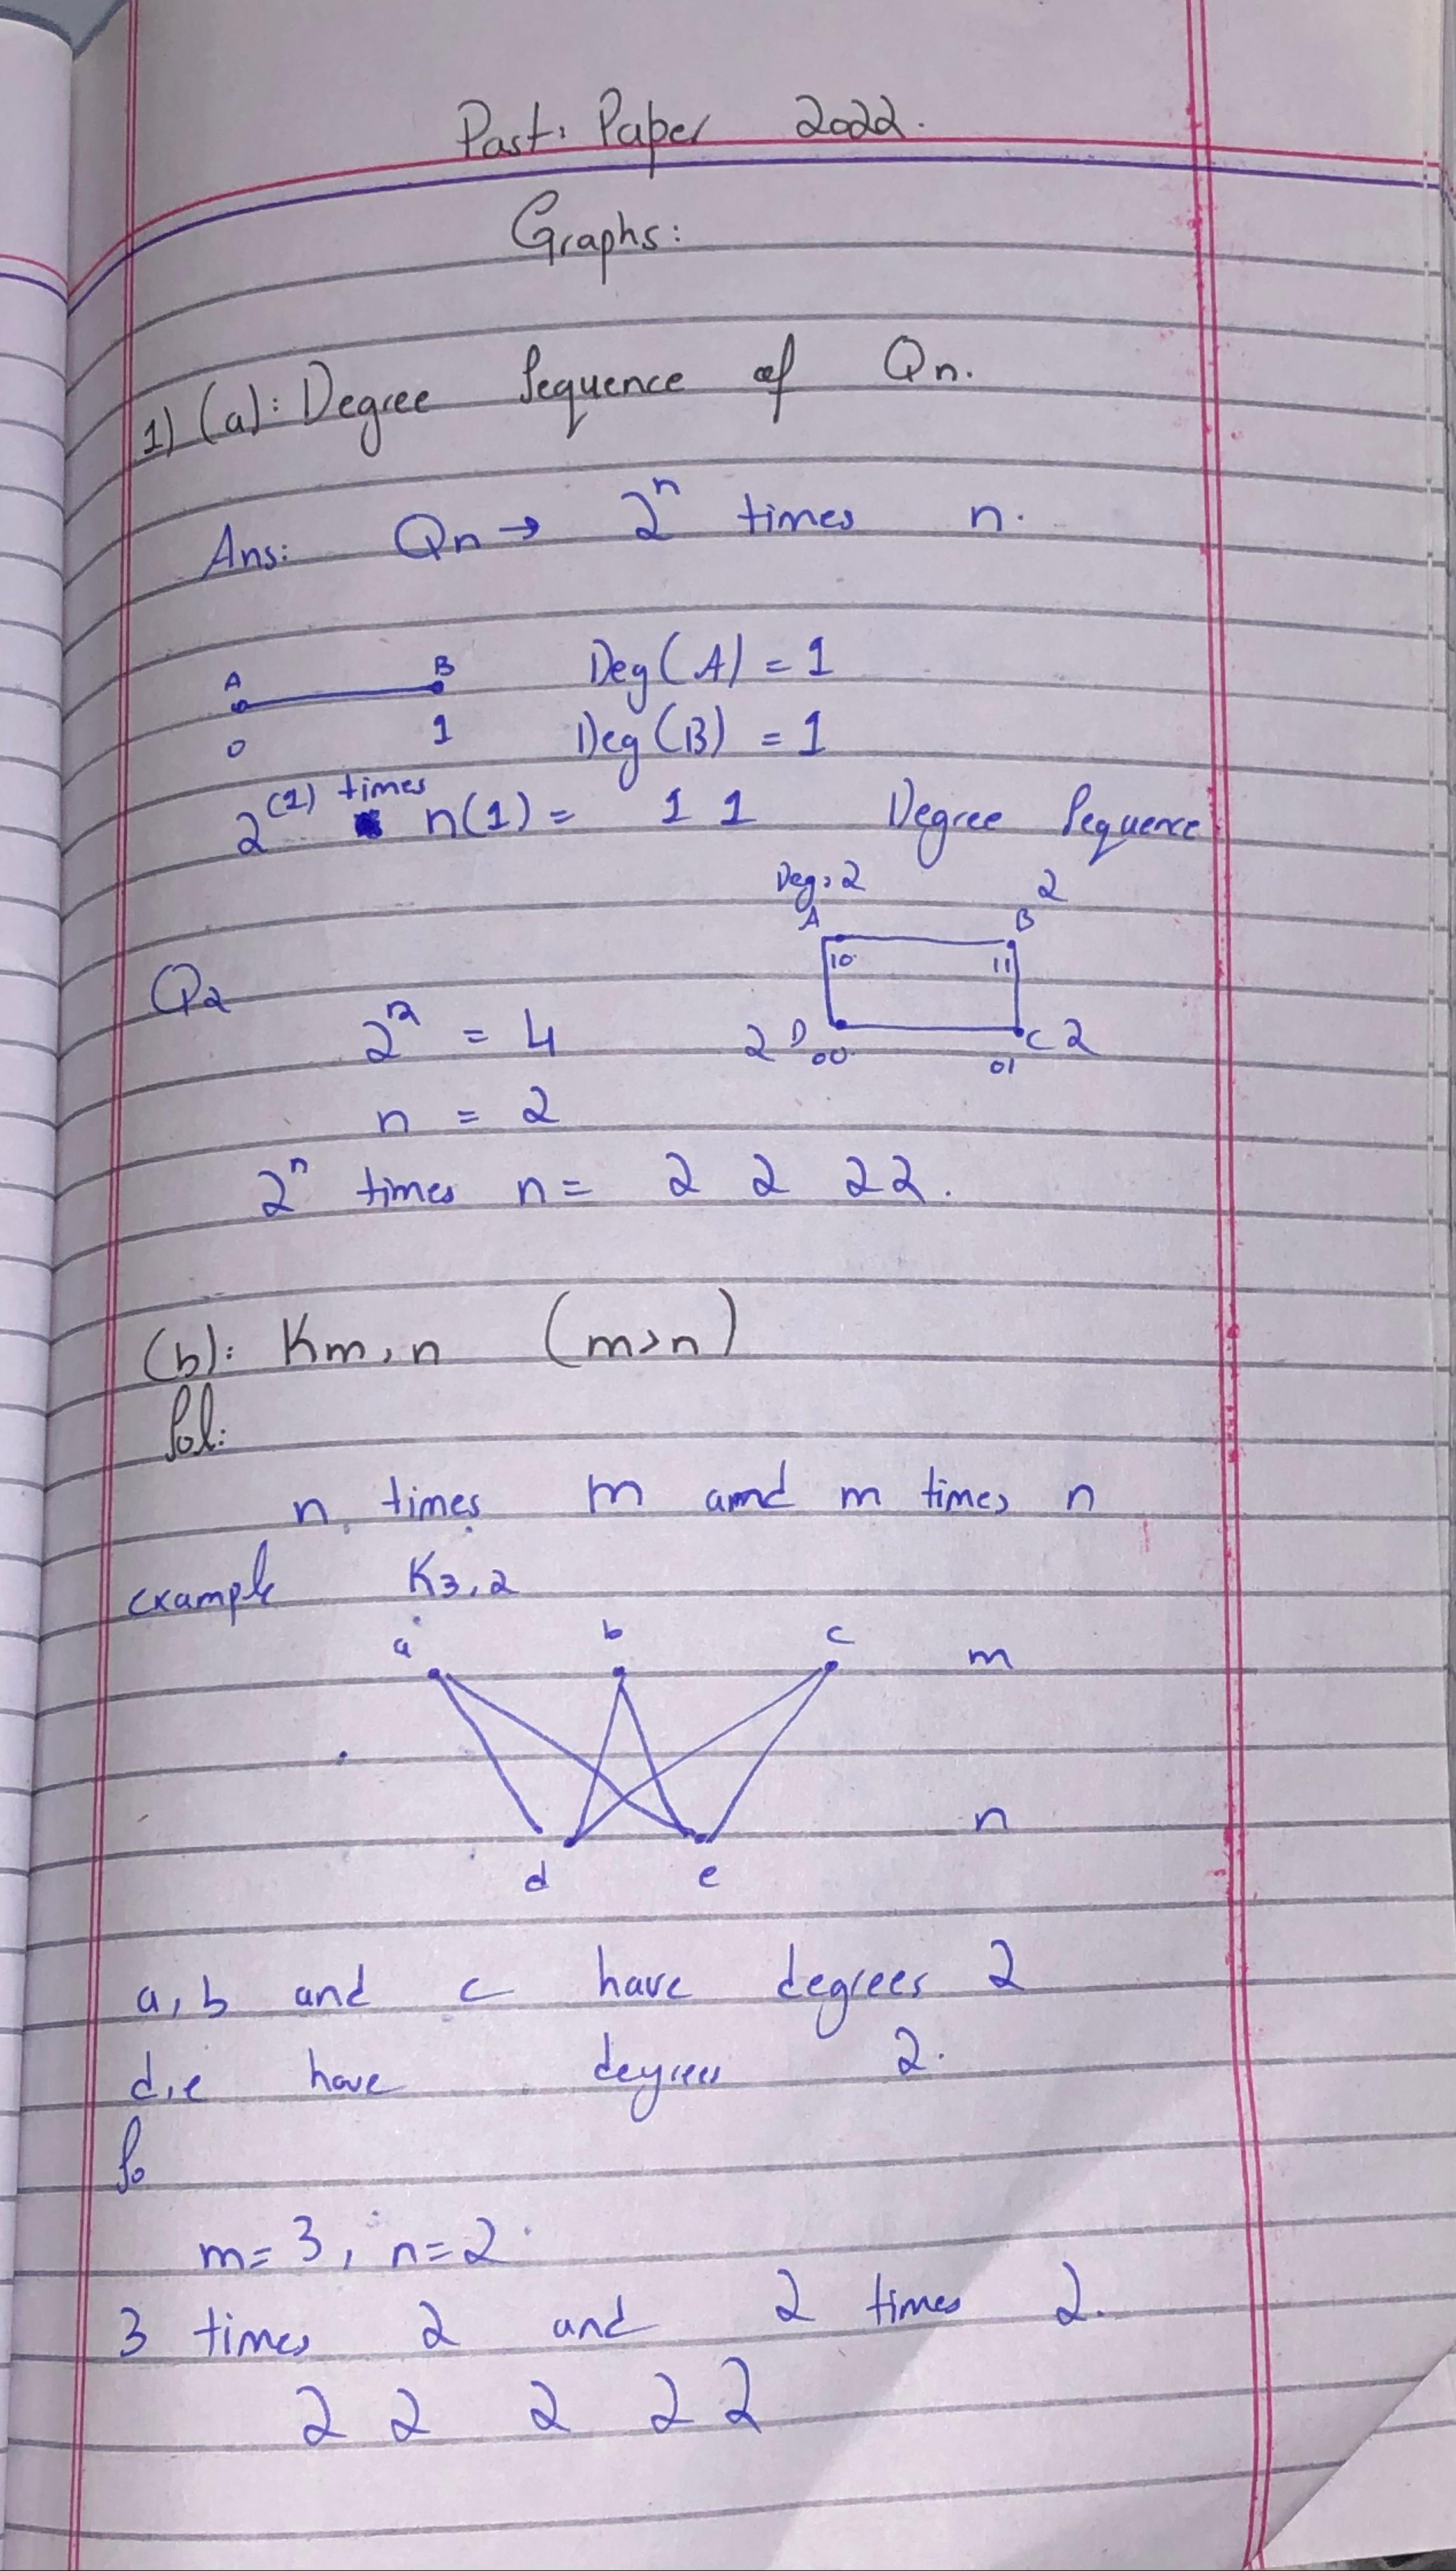 Past: Paper 2022.
Graphs:
1) (a): Degree Sequence of Qn.
Ans: Qn → 2^n times n.
A B Deg(A) = 1
0 1 Deg(B) = 1
2^(1) times n(1) = 1 1 Degree Sequence
Deg: 2 2
A B
10 11
Q2
2^2 = 4 2 D 00 01 C 2
n = 2
2^n times n = 2 2 2 2.
(b): Km,n (m>n)
Sol:
n times m amd m times n
example K3,2
a b c m
n
d e
a, b and c have degrees 2
d,e have degrees 2.
So
m= 3, n=2
3 times 2 and 2 times 2.
2 2 2 2 2